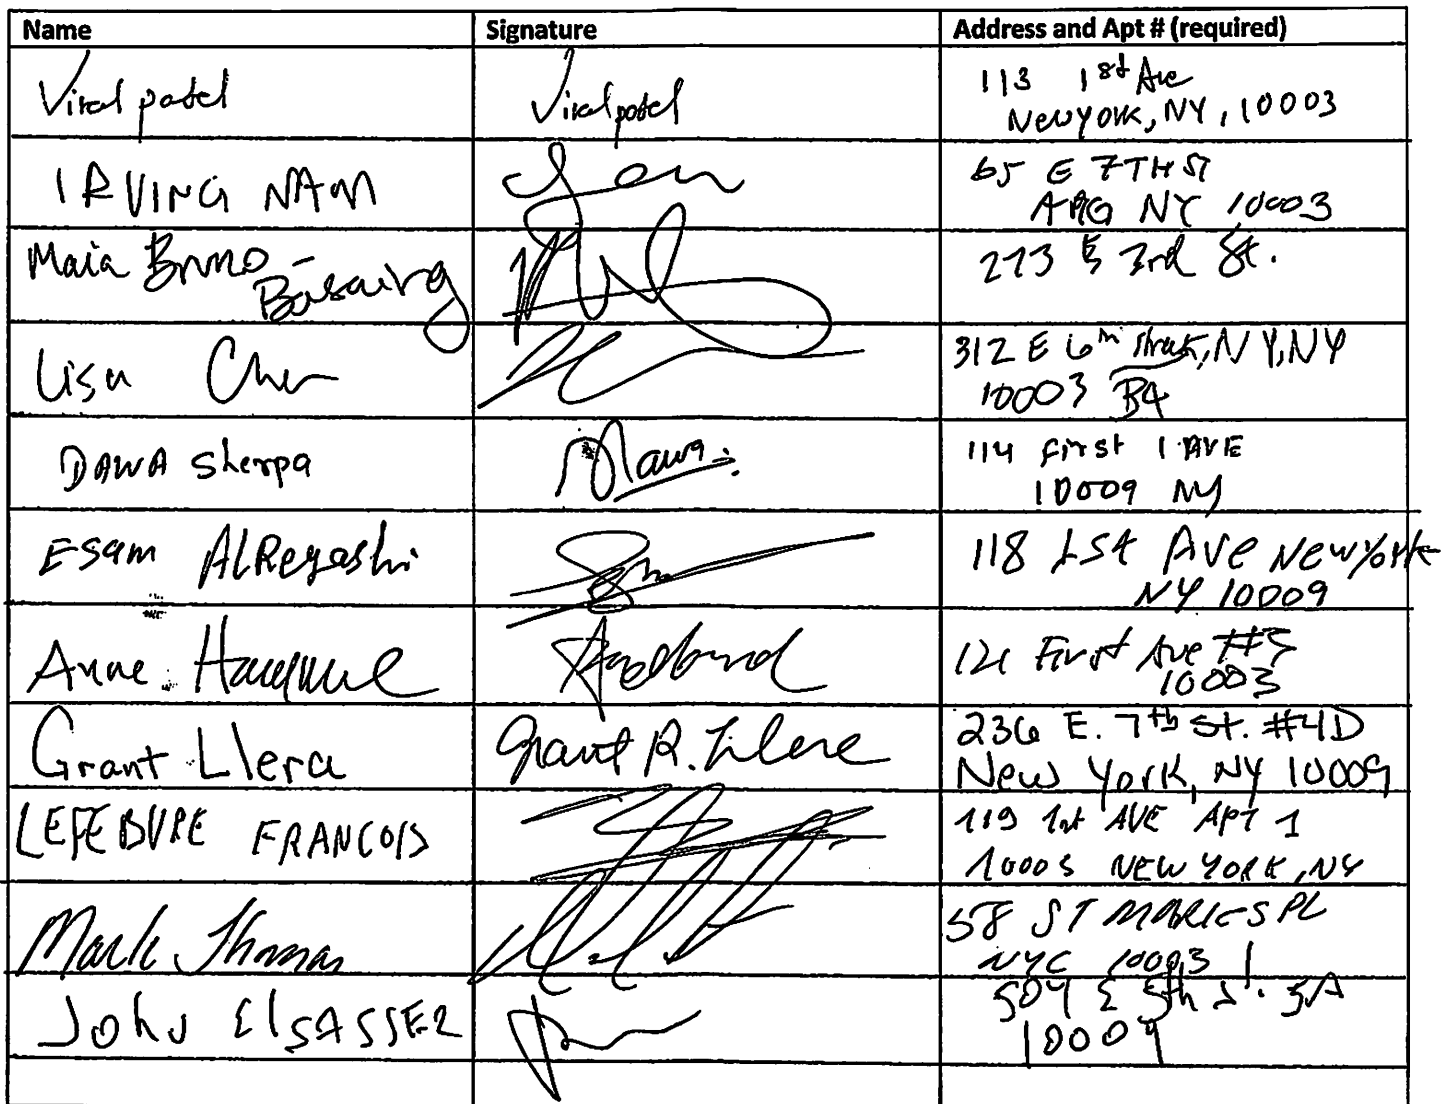 Name Signature Address and Apt # (required)
Viral patel Viral patel 113 1st Ave
New York, NY, 10003
IRVING NAM 65 E 7TH ST
NY 10003
Maia Bruno- 273 E 3rd St.
Lisa 312 E 6th Street, NY, NY
10003 B4
DAWA Sherpa Dawa 114 first 1 AVE
10009 NY
ESam AlReyashi 118 1St Ave New York
NY 10009
Anne 121 First Ave #5
10003
Grant Llera Grant R. 236 E. 7th St. #4D
New York, NY 10009
LEFEBVRE FRANCOIS 119 1st AVE APT 1
10003 NEW YORK, NY
Mark Thomas 58 ST MARKS PL
NYC 10003
John ElSASSER 504 E 5th St. 5A
10009